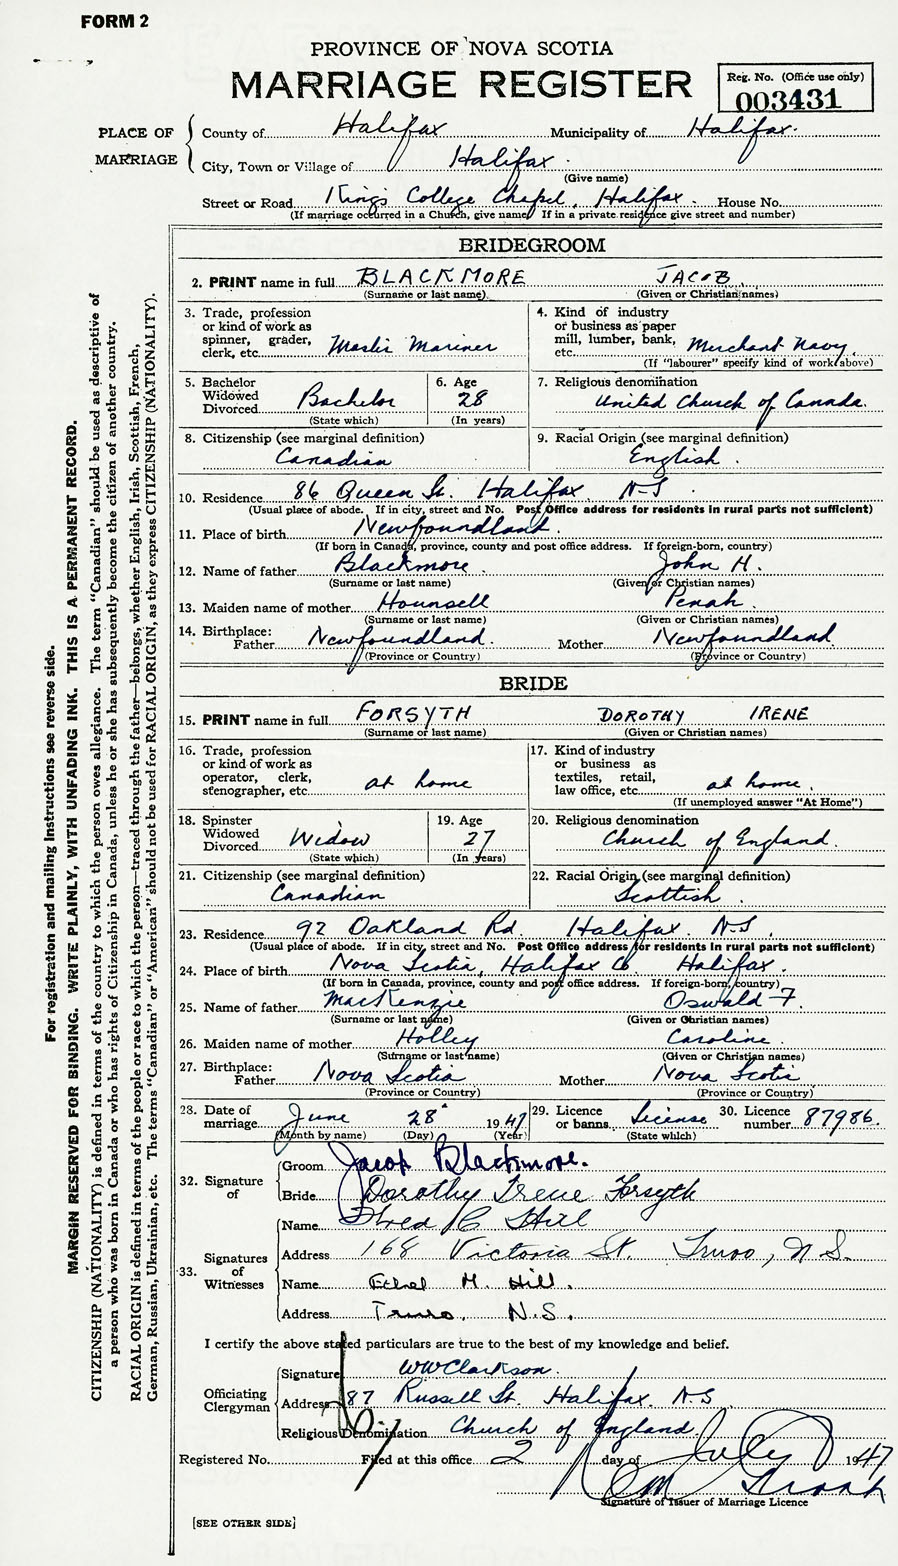 FORM 2
PROVINCE OF NOVA SCOTIA
MARRIAGE REGISTER
Reg. No. (Office use only)
003431
PLACE OF MARRIAGE
County of Halifax Municipality of Halifax.
City, Town or Village of Halifax.
(Give name)
Street or Road King's College Chapel, Halifax. House No.
(If marriage occurred in a Church, give name) If in a private residence give street and number)
BRIDEGROOM
2. PRINT name in full BLACKMORE JACOB
(Surname or last name) (Given or Christian names)
3. Trade, profession or kind of work as spinner, grader, clerk, etc. Master Mariner
4. Kind of industry or business as paper mill, lumber, bank, etc. Merchant Navy.
(If "labourer" specify kind of work above)
5. Bachelor Widowed Divorced Bachelor
(State which)
6. Age 28
(In years)
7. Religious denomination
United Church of Canada.
8. Citizenship (see marginal definition)
Canadian
9. Racial Origin (see marginal definition)
English.
10. Residence 86 Queen St. Halifax, N-S.
(Usual place of abode. If in city, street and No. Post Office address for residents in rural parts not sufficient)
11. Place of birth Newfoundland.
(If born in Canada, province, county and post office address. If foreign-born, country)
12. Name of father Blackmore. John H.
(Surname or last name) (Given or Christian names)
13. Maiden name of mother Hounsell Penah.
(Surname or last name) (Given or Christian names)
14. Birthplace: Father Newfoundland. Mother Newfoundland.
(Province or Country) (Province or Country)
BRIDE
15. PRINT name in full FORSYTH DOROTHY IRENE
(Surname or last name) (Given or Christian names)
16. Trade, profession or kind of work as operator, clerk, stenographer, etc. at home
17. Kind of industry or business as textiles, retail, law office, etc. at home.
(If unemployed answer "At Home")
18. Spinster Widowed Divorced Widow
(State which)
19. Age 27
(In years)
20. Religious denomination
Church of England.
21. Citizenship (see marginal definition)
Canadian
22. Racial Origin (see marginal definition)
Scottish.
23. Residence 92 Oakland Rd. Halifax. N.S.
(Usual place of abode. If in city, street and No. Post Office address for residents in rural parts not sufficient)
24. Place of birth Nova Scotia, Halifax Co. Halifax.
(If born in Canada, province, county and post office address. If foreign-born, country)
25. Name of father MacKenzie Oswald F.
(Surname or last name) (Given or Christian names)
26. Maiden name of mother Holley Caroline.
(Surname or last name) (Given or Christian names)
27. Birthplace: Father Nova Scotia Mother Nova Scotia
(Province or Country) (Province or Country)
28. Date of marriage June 28 1947
(Month by name) (Day) (Year)
29. Licence or banns License
(State which)
30. Licence number 87986.
32. Signature of
Groom Jacob Blackmore.
Bride Dorothy Irene Forsyth
33. Signatures of Witnesses
Name Fred C Hill
Address 168 Victoria St. Truro, N.S.
Name Ethel M. Hill.
Address Truro, N.S.
I certify the above stated particulars are true to the best of my knowledge and belief.
Officiating Clergyman
Signature WWClarkson.
Address 87 Russell St. Halifax. N.S.
Religious Denomination Church of England.
Registered No. Filed at this office 2 day of July 1947
Signature of Issuer of Marriage Licence
[SEE OTHER SIDE]
For registration and mailing instructions see reverse side.
MARGIN RESERVED FOR BINDING. WRITE PLAINLY, WITH UNFADING INK. THIS IS A PERMANENT RECORD.
CITIZENSHIP (NATIONALITY) is defined in terms of the country to which the person owes allegiance. The term "Canadian" should be used as descriptive of
a person who was born in Canada or who has rights of Citizenship in Canada, unless he or she has subsequently become the citizen of another country.
RACIAL ORIGIN is defined in terms of the people or race to which the person—traced through the father—belongs, whether English, Irish, Scottish, French,
German, Russian, Ukrainian, etc. The terms "Canadian" or "American" should not be used for RACIAL ORIGIN, as they express CITIZENSHIP (NATIONALITY).